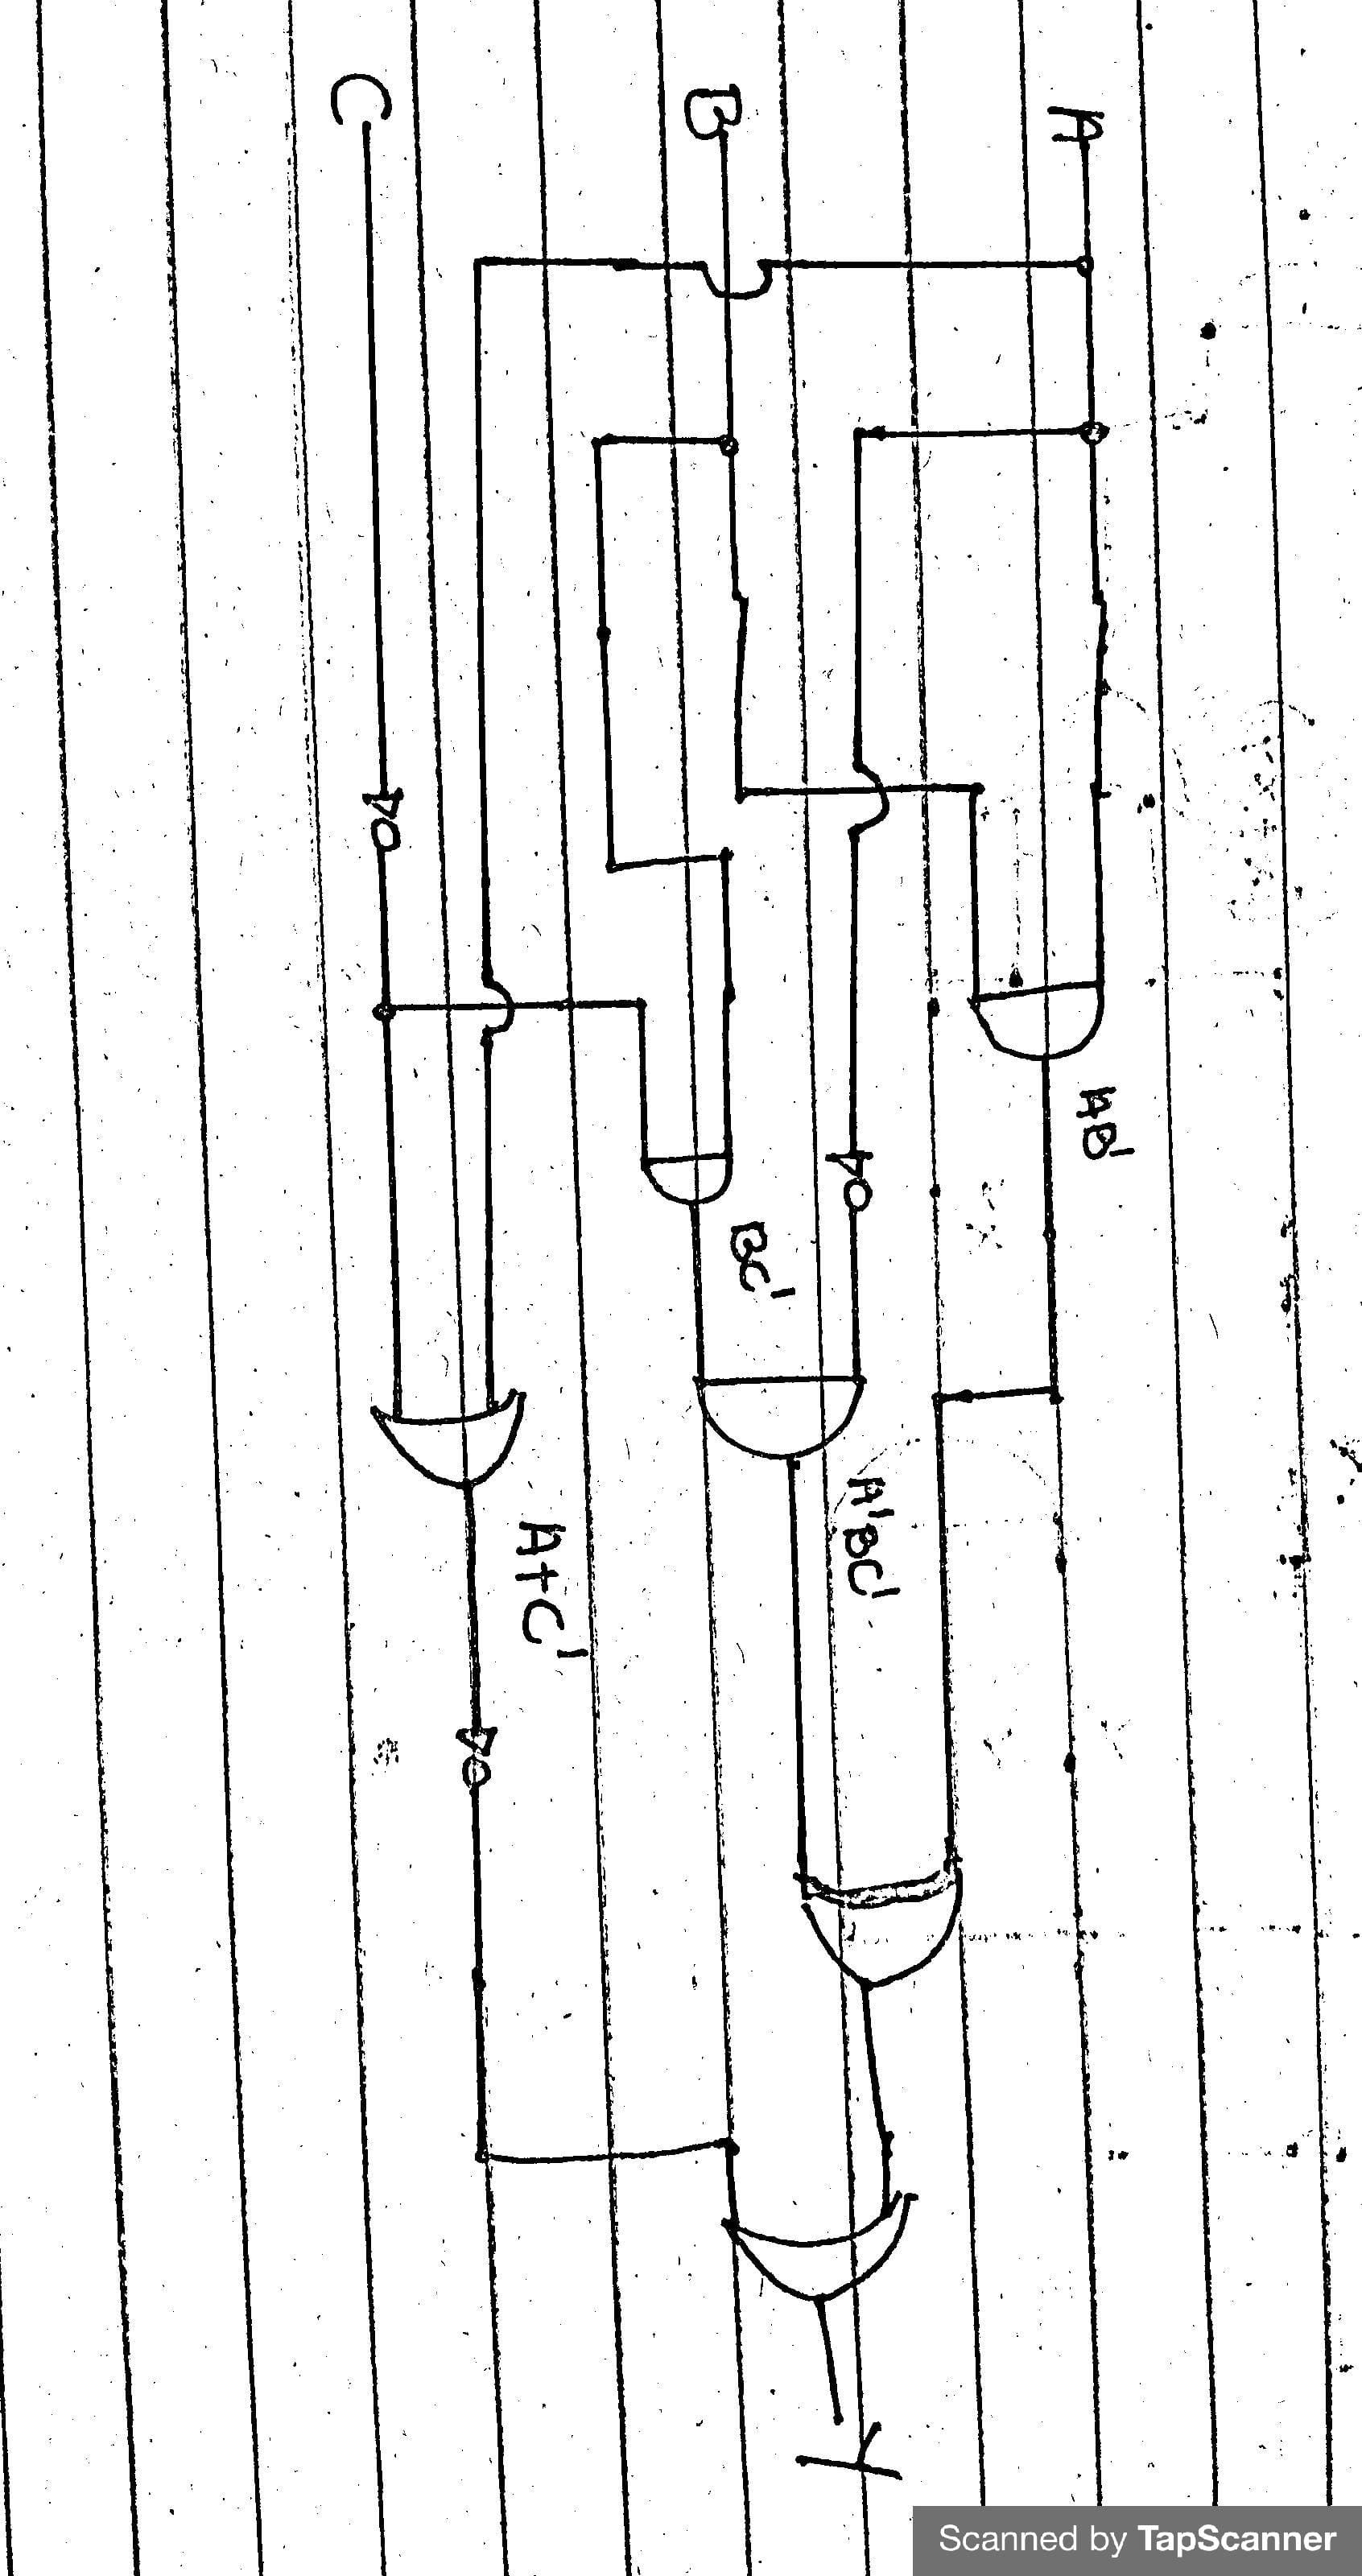 A
AB'
A'BC'
Y
B
BC'
A+C'
C
Scanned by TapScanner